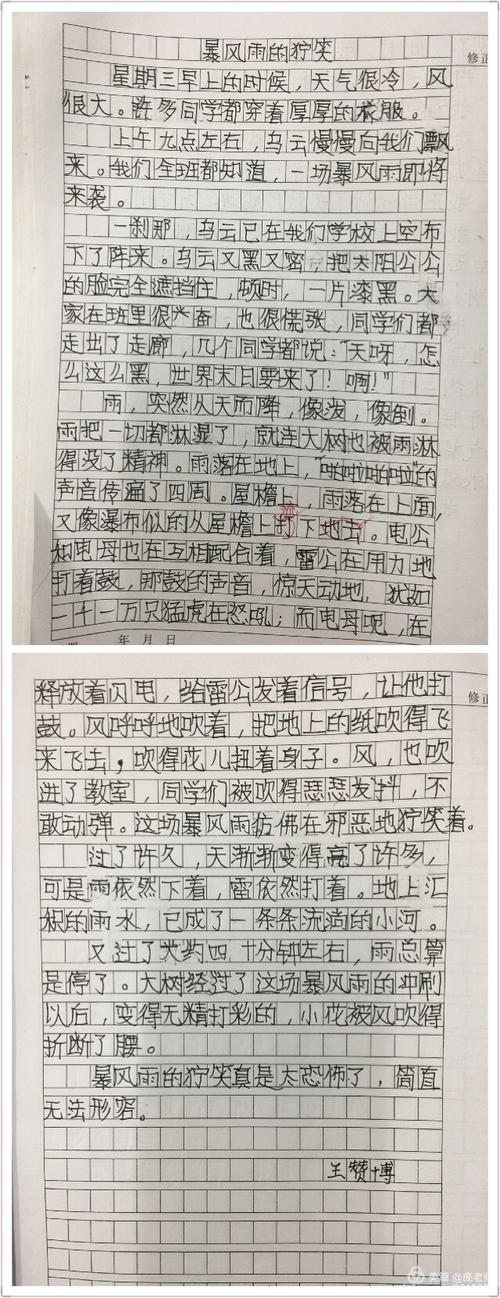 暴风雨的狞笑
修正
星期三早上的时候，天气很冷，风
很大。许多同学都穿着厚厚的衣服。
上午九点左右，乌云慢慢向我们飘
来。我们全班都知道，一场暴风雨即将
来袭。
一刹那，乌云已在我们学校上空布
下了阵来。乌云又黑又密，把太阳公公
的脸完全遮挡住，顿时，一片漆黑。大
家在班里很兴奋，也很慌张，同学们都
走出了走廊，几个同学都说："天呀，怎
么这么黑，世界末日要来了！啊！"
雨，突然从天而降，像泼，像倒。
雨把一切都淋湿了，就连大树也被雨淋
得没了精神。雨落在地上，"啪啦啪啦"的
声音传遍了四周。屋檐上，雨落在上面，
又像瀑布似的从屋檐上打下地去。电公
和电母也在互相配合着，雷公在用力地
打着鼓，那鼓的声音，惊天动地，犹如
一千一万只猛虎在怒吼；而电母呢，在
年 月 日
释放着闪电，给雷公发着信号，让他打
修正
鼓。风呼呼地吹着，把地上的纸吹得飞
来飞去，吹得花儿扭着身子。风，也吹
进了教室，同学们被吹得瑟瑟发抖，不
敢动弹。这场暴风雨仿佛在邪恶地狞笑着。
过了许久，天渐渐变得亮了许多，
可是雨依然下着，雷依然打着。地上汇
积的雨水，已成了一条条流淌的小河。
又过了大约四十分钟左右，雨总算
是停了。大树经过了这场暴风雨的冲刷
以后，变得无精打彩的，小花被风吹得
折断了腰。
暴风雨的狞笑真是太恐怖了，简直
无法形容。
王赞博
美篇@庞老师